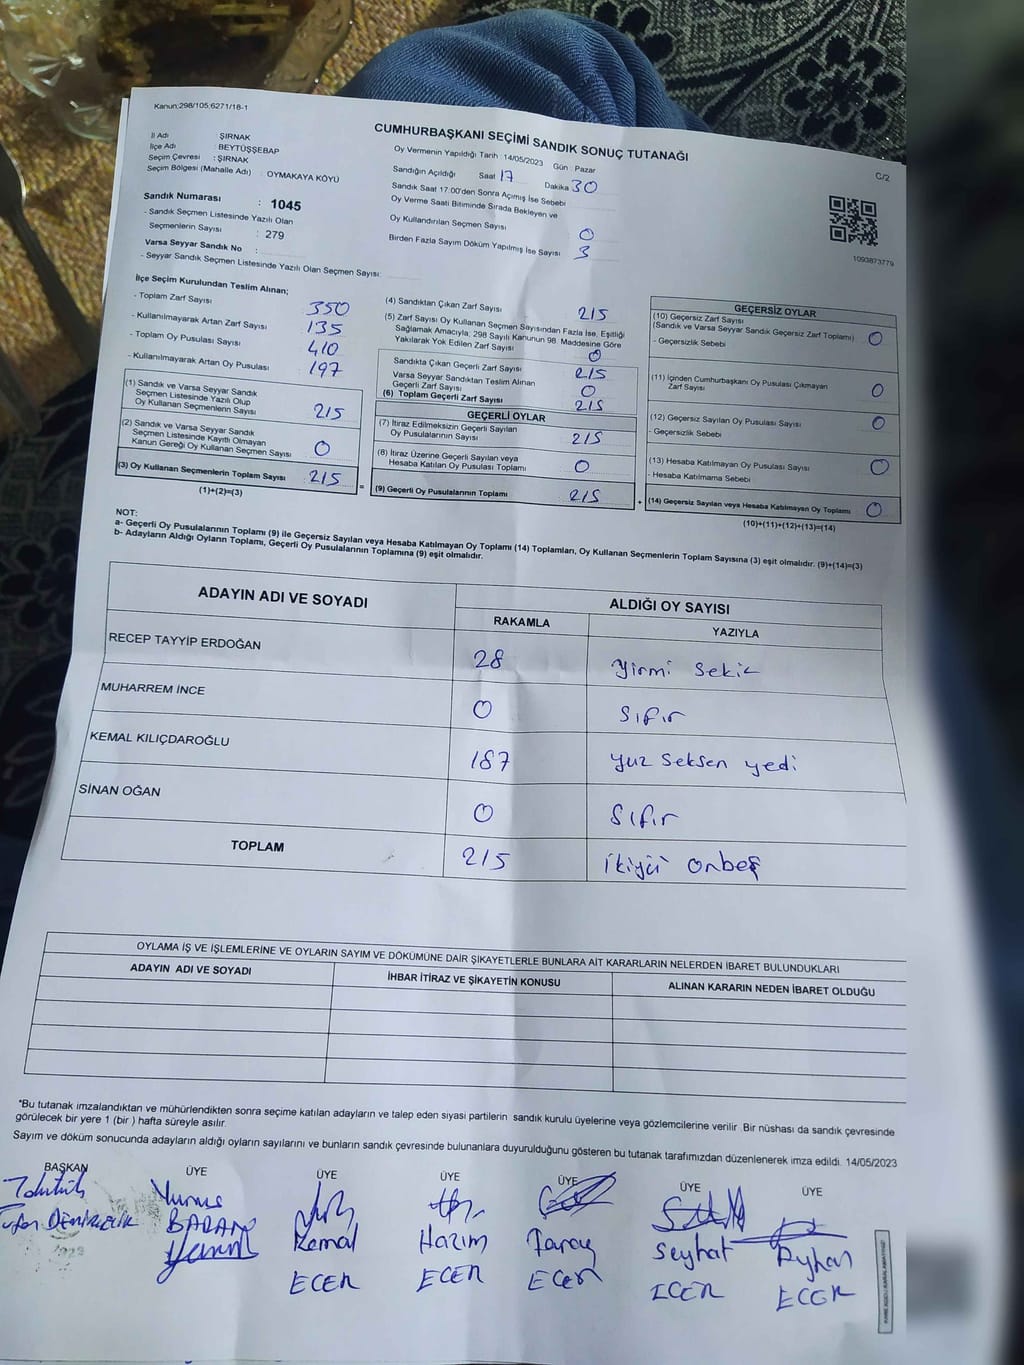 Kanun:298/105;6271/18-1
CUMHURBAŞKANI SEÇİMİ SANDIK SONUÇ TUTANAĞI
C/2
İl Adı : ŞIRNAK
İlçe Adı : BEYTÜŞŞEBAP
Seçim Çevresi : ŞIRNAK
Seçim Bölgesi (Mahalle Adı) : OYMAKAYA KÖYÜ
Sandık Numarası : 1045
- Sandık Seçmen Listesinde Yazılı Olan
Seçmenlerin Sayısı : 279
Varsa Seyyar Sandık No :
- Seyyar Sandık Seçmen Listesinde Yazılı Olan Seçmen Sayısı:
Oy Vermenin Yapıldığı Tarih : 14/05/2023 Gün : Pazar
Sandığın Açıldığı Saat 17 Dakika 30
Sandık Saat 17:00'den Sonra Açımış İse Sebebi
Oy Verme Saati Bitiminde Sırada Bekleyen ve
Oy Kullandırılan Seçmen Sayısı 0
Birden Fazla Sayım Döküm Yapılmış İse Sayısı 3
1093873779
İlçe Seçim Kurulundan Teslim Alınan;
- Toplam Zarf Sayısı 350
- Kullanılmayarak Artan Zarf Sayısı 135
- Toplam Oy Pusulası Sayısı 410
- Kullanılmayarak Artan Oy Pusulası 197
(1) Sandık ve Varsa Seyyar Sandık
Seçmen Listesinde Yazılı Olup
Oy Kullanan Seçmenlerin Sayısı 215
(2) Sandık ve Varsa Seyyar Sandık
Seçmen Listesinde Kayıtlı Olmayan
Kanun Gereği Oy Kullanan Seçmen Sayısı 0
(3) Oy Kullanan Seçmenlerin Toplam Sayısı 215
(1)+(2)=(3)
=
(4) Sandıktan Çıkan Zarf Sayısı 215
(5) Zarf Sayısı Oy Kullanan Seçmen Sayısından Fazla İse, Eşitliği
Sağlamak Amacıyla, 298 Sayılı Kanunun 98. Maddesine Göre
Yakılarak Yok Edilen Zarf Sayısı 0
Sandıkta Çıkan Geçerli Zarf Sayısı 215
Varsa Seyyar Sandıktan Teslim Alınan
Geçerli Zarf Sayısı 0
(6) Toplam Geçerli Zarf Sayısı 215
GEÇERLİ OYLAR
(7) İtiraz Edilmeksizin Geçerli Sayılan
Oy Pusulalarının Sayısı 215
(8) İtiraz Üzerine Geçerli Sayılan veya
Hesaba Katılan Oy Pusulası Toplamı 0
(9) Geçerli Oy Pusulalarının Toplamı 215
+
GEÇERSİZ OYLAR
(10) Geçersiz Zarf Sayısı
(Sandık ve Varsa Seyyar Sandık Geçersiz Zarf Toplamı) 0
- Geçersizlik Sebebi
(11) İçinden Cumhurbaşkanı Oy Pusulası Çıkmayan
Zarf Sayısı 0
(12) Geçersiz Sayılan Oy Pusulası Sayısı 0
- Geçersizlik Sebebi
(13) Hesaba Katılmayan Oy Pusulası Sayısı 0
- Hesaba Katılmama Sebebi
(14) Geçersiz Sayılan veya Hesaba Katılmayan Oy Toplamı 0
(10)+(11)+(12)+(13)=(14)
NOT:
a- Geçerli Oy Pusulalarının Toplamı (9) ile Geçersiz Sayılan veya Hesaba Katılmayan Oy Toplamı (14) Toplamları, Oy Kullanan Seçmenlerin Toplam Sayısına (3) eşit olmalıdır. (9)+(14)=(3)
b- Adayların Aldığı Oyların Toplamı, Geçerli Oy Pusulalarının Toplamına (9) eşit olmalıdır.
ADAYIN ADI VE SOYADI ALDIĞI OY SAYISI
RAKAMLA YAZIYLA
RECEP TAYYİP ERDOĞAN 28 Yirmi Sekiz
MUHARREM İNCE 0 Sıfır
KEMAL KILIÇDAROĞLU 187 yuz Seksen yedi
SİNAN OĞAN 0 Sıfır
TOPLAM 215 ikiyü onbeş
OYLAMA İŞ VE İŞLEMLERİNE VE OYLARIN SAYIM VE DÖKÜMÜNE DAİR ŞİKAYETLERLE BUNLARA AİT KARARLARIN NELERDEN İBARET BULUNDUKLARI
ADAYIN ADI VE SOYADI İHBAR İTİRAZ VE ŞİKAYETİN KONUSU ALINAN KARARIN NEDEN İBARET OLDUĞU
*Bu tutanak imzalandıktan ve mühürlendikten sonra seçime katılan adayların ve talep eden siyasi partilerin sandık kurulu üyelerine veya gözlemcilerine verilir. Bir nüshası da sandık çevresinde
görülecek bir yere 1 (bir ) hafta süreyle asılır.
Sayım ve döküm sonucunda adayların aldığı oyların sayılarını ve bunların sandık çevresinde bulunanlara duyurulduğunu gösteren bu tutanak tarafımızdan düzenlenerek imza edildi. 14/05/2023
BAŞKAN ÜYE ÜYE ÜYE ÜYE ÜYE ÜYE
Yunus
BARAN
Kemal Hazım Taray Seyhat Reyhan
ECER ECER ECER ECER ECER